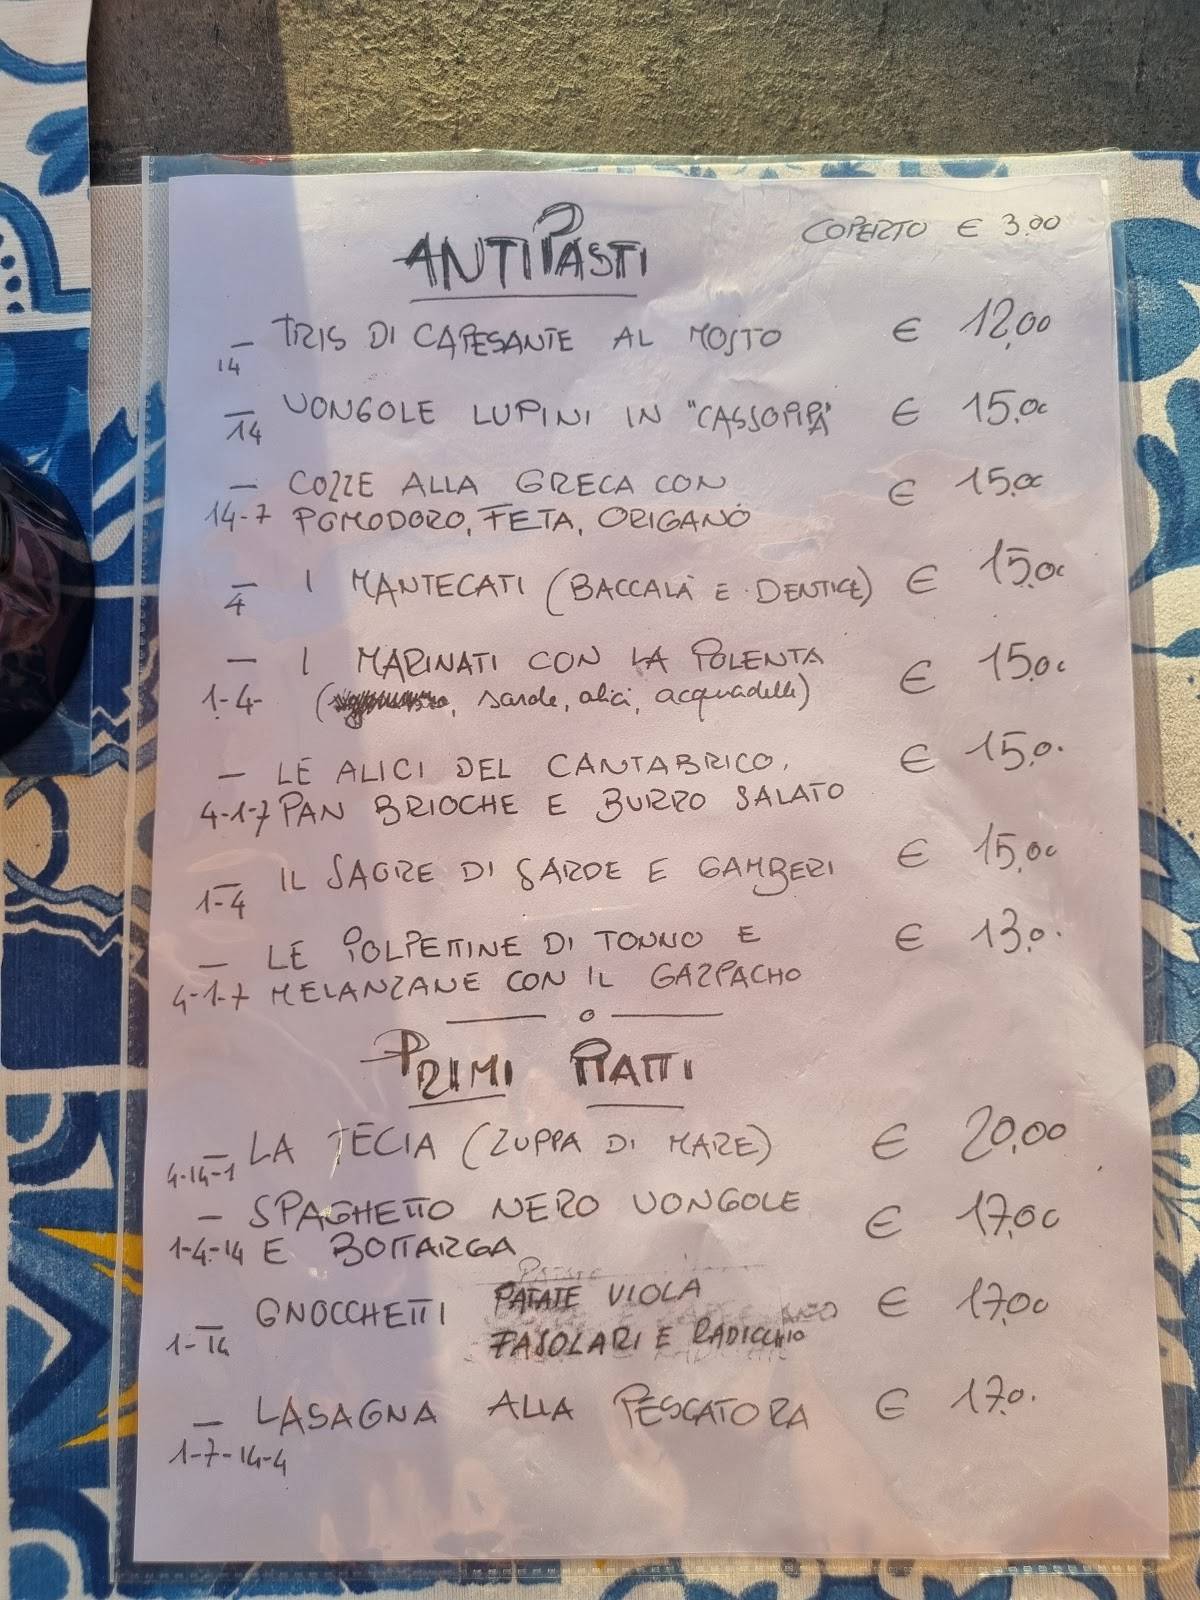 ANTIPASTI
COPERTO € 3.00
— TRIS DI CAPESANTE AL MOSTO € 12,00
14
— VONGOLE LUPINI IN "CASSOPIPA" € 15,00
14
— COZZE ALLA GRECA CON € 15,00
14-7 POMODORO, FETA, ORIGANO
— I MANTECATI (BACCALÀ E DENTICE) € 15,00
4
— I MARINATI CON LA POLENTA € 15,00
1-4- ( , sarde, alici, acquadelle)
— LE ALICI DEL CANTABRICO, € 15,0.
4-1-7 PAN BRIOCHE E BURRO SALATO
— IL SAGRE DI SARDE E GAMBERI € 15,00
1-4
— LE POLPETTINE DI TONNO E € 13,0.
4-1-7 MELANZANE CON IL GAZPACHO
— o —
PRIMI PIATTI
— LA TECIA (ZUPPA DI MARE) € 20,00
4-14-1
— SPAGHETTO NERO VONGOLE € 17,00
1-4-14 E BOTTARGA
GNOCCHETTI PATATE VIOLA € 17,00
— FASOLARI E RADICCHIO
1-14
— LASAGNA ALLA PESCATORA € 17,0.
1-7-14-4